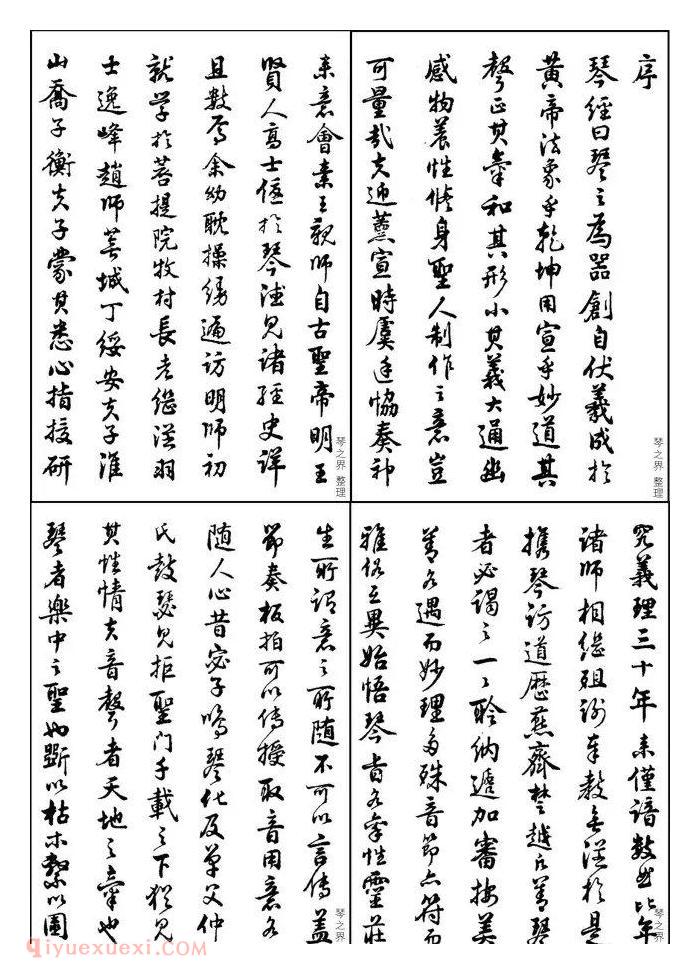 序
琴經曰琴之為器創自伏羲成於
黃帝法象乎乾坤用宣乎妙道其
聲正其氣和其形小其義大通幽
感物養性修身聖人制作之意豈
可量哉夫迎薰宣時虞廷協奏神
琴之界 整理
來意會素王親師自古聖帝明王
賢人高士於琴法見諸經史詳
且數焉余幼耽操縵遍訪明師初
就学於菩提院牧村長老繼從羽
士逸峰趙師蕪城丁綏安夫子淮
山喬子衡夫子蒙其悉心指授研
琴之界 整理
究義理三十年來僅諳數曲比年
諸師相繼殂謝奉教無從於是
攜琴訪道歷燕齊楚越凡善琴
者必謁之一一聆納遞加審按美
善各遇而妙理多殊音節亦符而
雅俗互異始悟琴旨各率性靈莊
琴之界
生所謂意之所随不可以言傳蓋
節奏板拍可以傳授取音用意各
随人心昔宓子鳴琴化及單父仲
氏鼓瑟見拒聖門千載之下猶見
其性情夫音聲者天地之氣也
琴者樂中之聖也斲以枯木繫以圓
琴之界
qiyuexuexi.com